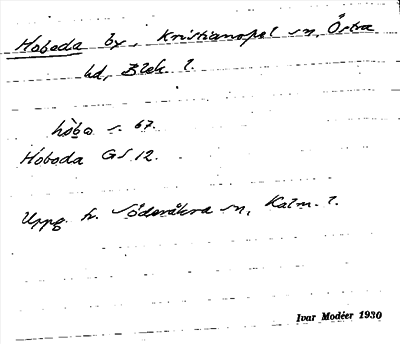 Hoboda by, Kristianopel sn, Östra
hd, Blek. l.
hòba s. 67.
Hoboda GS 12.
Uppg. fr. Söderåkra sn, Kalm. l.
Ivar Modéer 1930